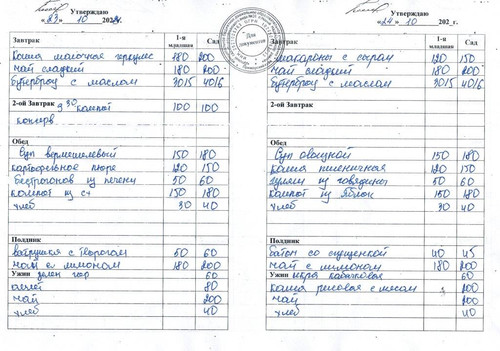 Утверждаю
«23» 10 202
1-я младшая Сад
Завтрак
Каша молочная геркулес 180 200
чай сладкий 180 200
бутерброд с маслом 30/5 40/6
2-ой Завтрак 9 30 компот 100 100
консерв.
Обед
Суп вермешелевый 150 180
картофельное пюре 120 150
бефстроганов из печени 50 60
компот из с/ч 150 180
хлеб 30 40
Полдник
ватрушка с творогом 50 60
чай с лимоном 180 200
Ужин зелен гор 60
омлет 80
чай 200
хлеб 40
Для документов
Утверждаю
«24» 10 202 г.
1-я младшая Сад
Завтрак
макароны с сыром 120 150
чай сладкий 180 200
бутерброд с маслом 30/5 40/6
2-ой Завтрак
Обед
Суп овощной 150 180
каша пшеничная 120 150
гуляш из говядины 50 60
компот из яблок 150 180
хлеб 30 40
Полдник
батон со сгущенкой 40 45
чай с лимоном 180 200
Ужин икра кабачковая 60
каша рисовая с мясом 200
чай 200
хлеб 40